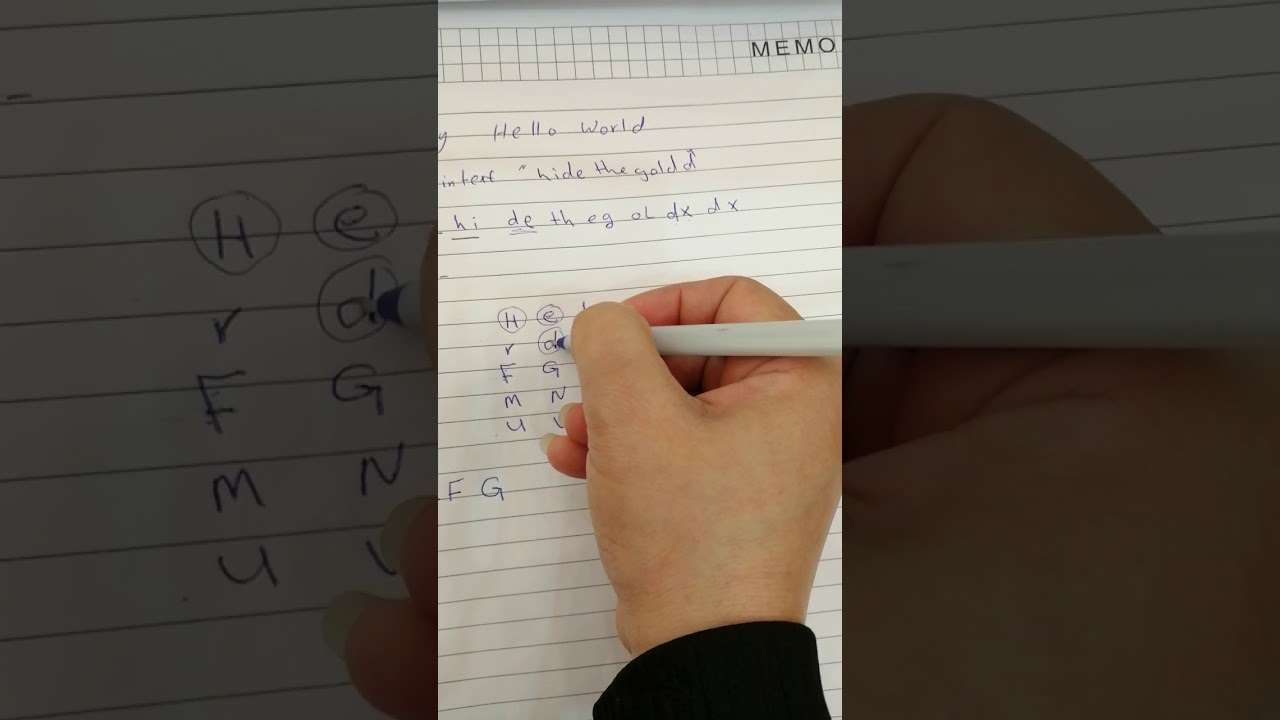 MEMO
y Hello World
intext "hide the gold d"
hi de th eg ol dx dx
H e
r d
F G
M N
U
F G